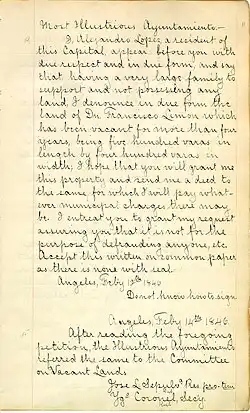 Most Illustrious Ayuntamiento:-
I, Alejandro Lopez a resident of
this Capital, appear before you with
due respect and in due form, and say
that having a very large family to
support and not possessing any
land, I denounce in due form the
land of Dn. Francisco Limon which
has been vacant for more than four
years, being five hundred varas in
length by four hundred varas in
width; I hope that you will grant me
this property and send me a deed to
the same, for which I will pay what-
ever municipal charges there may
be. I entreat you to grant my request
assuring you that it is not for the
purpose of defrauding anyone, etc.
Accept this written on common paper
as there is none with seal
Angeles, Feby 13th 1846
Do not know how to sign
Angeles, Feby 14th 1846.
After reading the foregoing
petition, the Illustrious Ayuntamiento
referred the same to the Committee
on Vacant Lands
Jose L Sepulva Pres pro-tem
Ygo Coronel, Secy